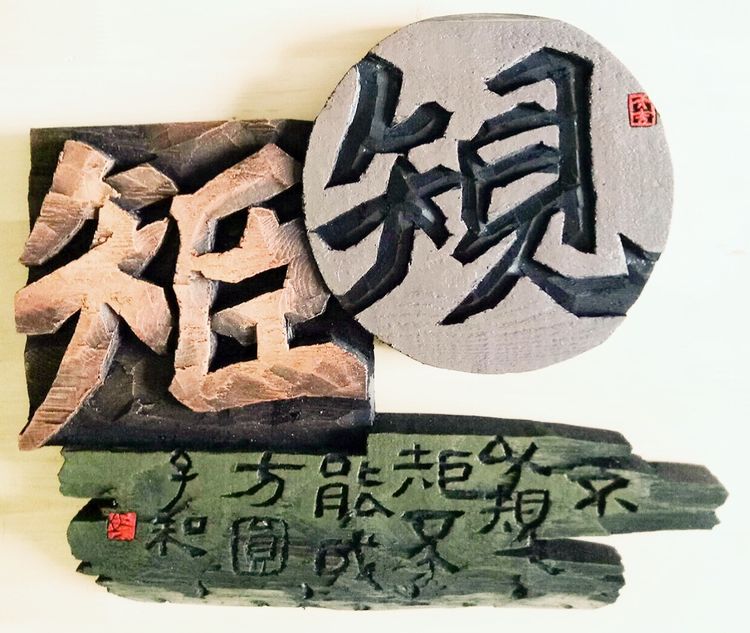 䂓
矩
不
以規
矩不
能成
方圓
子和